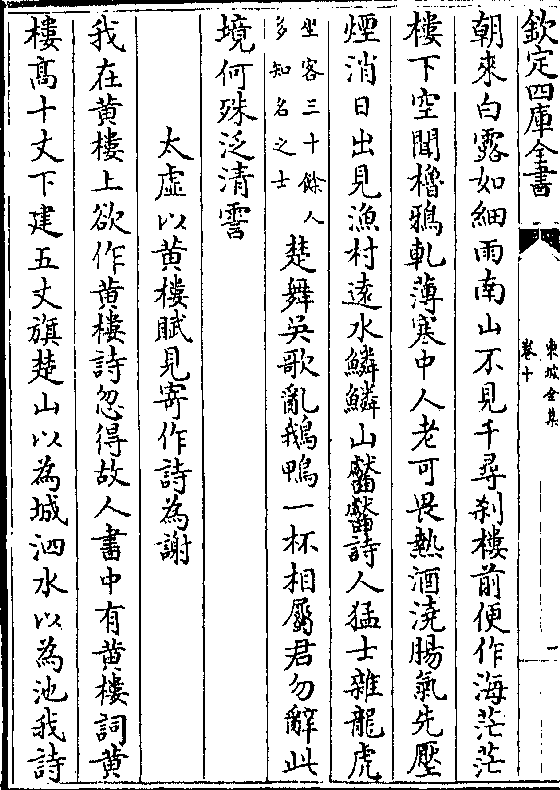 欽定四庫全書
東坡全集
卷十
一
朝來白露如細雨南山不見千尋刹樓前便作海茫茫
樓下空聞櫓鴉軋薄寒中人老可畏熱酒澆腸氣先壓
煙消日出見漁村遠水鱗鱗山齾齾詩人猛士雜龍虎
坐客三十餘人
多知名之士
楚舞吳歌亂鵝鴨一杯相屬君勿辭此
境何殊泛清霅
太虛以黄樓賦見寄作詩為謝
我在黄樓上欲作黄樓詩忽得故人書中有黄樓詞黄
樓髙十丈下建五丈旗楚山以為城泗水以為池我詩